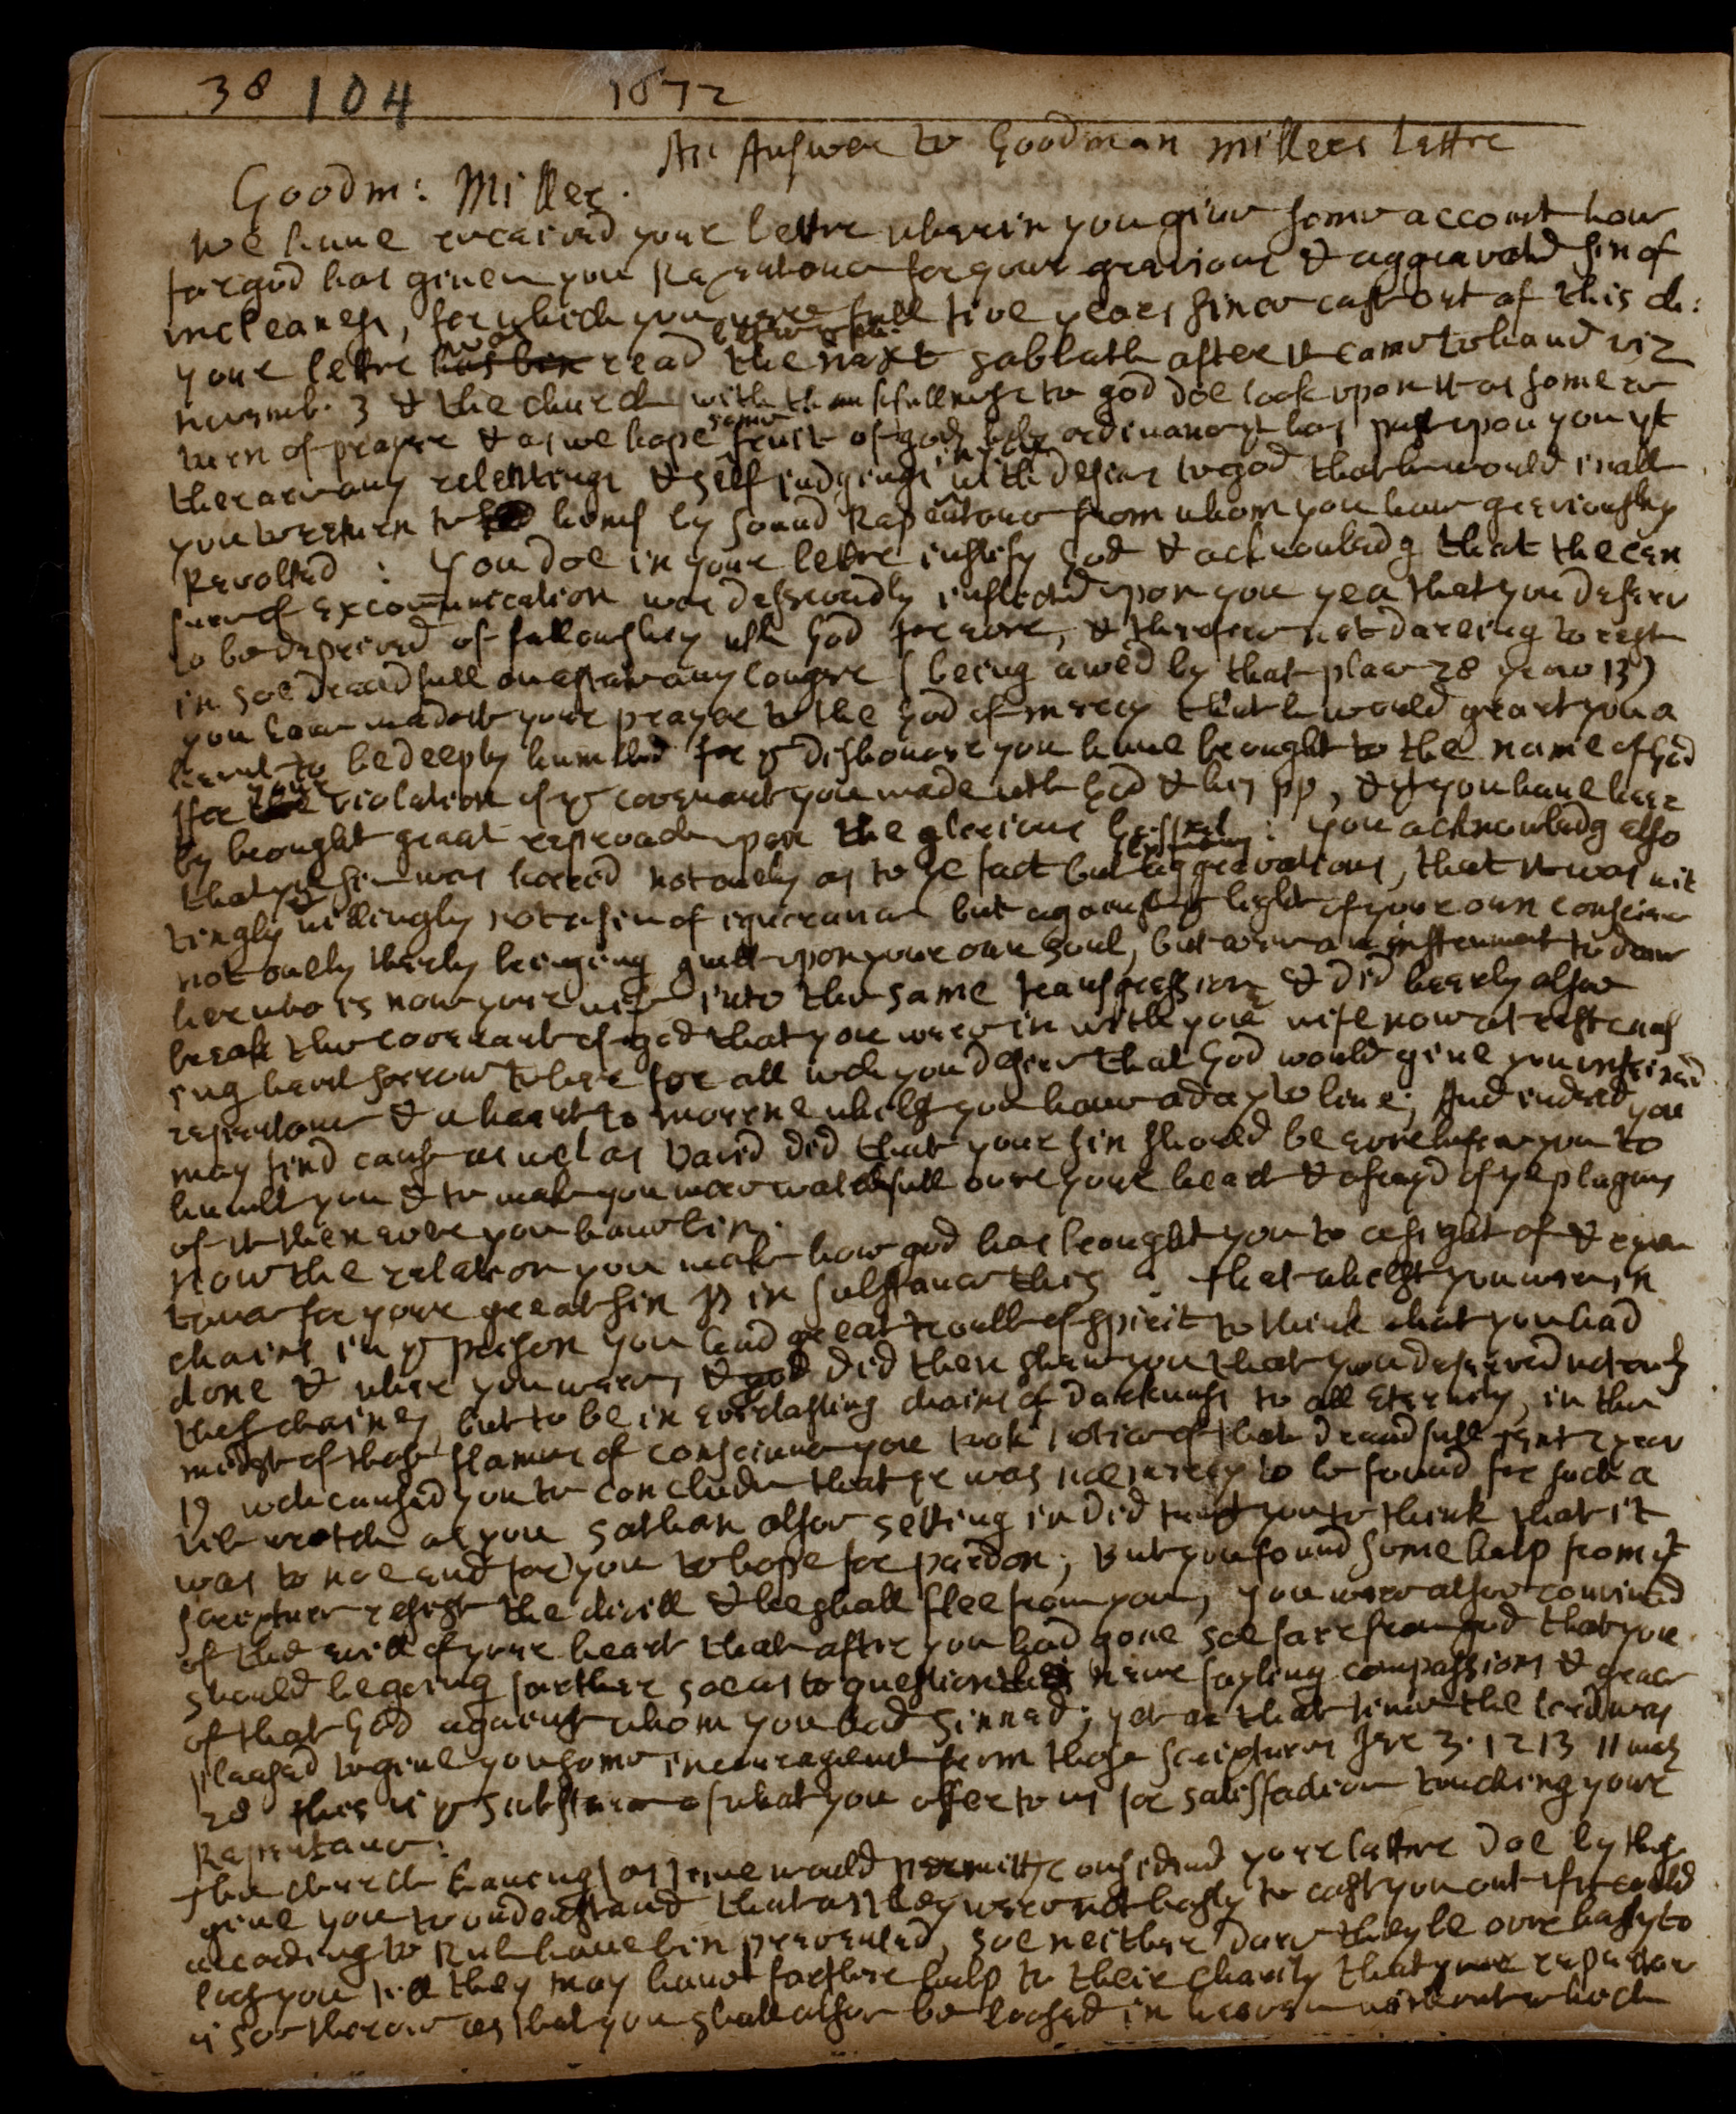 38 104 1672
An Answer to Goodman millers lettre
Goodm: Miller.
we haue receiued youre lettre wherein you giue some account how
far god has giuen you Repentance for youre greuious & aggrauated sin of
uncleanes, for which you were full five yeares since cast out of this ch:
youre lettre was read the next sabbath after it came to hand viz
nouemb. 3 & the church with thankfullnesse to god doe look vpon it as some re
turn of prayre & as we hope some fruit of gods holy ordinance that has past vpon you yt
there are any relentings & self judgings in you with desires to god that he would inable
you to return to him by sound Repentance from whom you haue greeuiously
Revolted : You doe in youre lettre iustify God & acknowledg that the cen
sure of excomunication was deseruedly inflicted vpon you yea that you deserue
to be depriued of fellowship with God for euer, & therefore not dareing to rest
in soe dreadfull an estate any longre (being awed by that place 28 prov 13)
you haue made it youre prayer to the God of mercy that he would grant you a
heart to be deeply humbled for ye dishonoure you haue brought to the name of God
for your violation of ye covenant you made with God & his pp, & yt you haue here
by brought great reproach vpon the glorious Gospel : You acknowledg also
that youre sin was horrid not onely as to ye fact but aggravations, that it was wit
tingly willingly not a sin of ignorance but against ye light of youre own conscience
not onely therby bringing guilt vpon youre own soul, but were an instrument to draw
her who is now youre wife into the same transgression & did heerby alsoe
break the covenant of god that you were in with youre wife now at rest caus
ing heart sorrow to her for all wch you desire that God would giue you unfeined
repentance & a heart to mourne whilst you haue a day to liue; And indeed you
may find cause as wel as David did that youre sin should be euer before you to
humble you & to make you more watchfull ovre youre heart & afrayd of ye plagues
of it then euer you haue bin.
Now the relation you make how god has brought you to a sight of & repen
tance for youre great sin is in substance this : that whilst you were in
chaines in ye prison you had great trouble of spirit to think what you had
done & where you were, & god did then shew you that you deserued not only
these chaines, but to be in everlasting chaines of darknesse to all eternity, in the
midst of those flames of conscience you took notice of that dreadfull
19 wch caused you to conclude that there was noe mercy to be found for such a
vile wretch as you sathan alsoe setting in did tempt you to think that it
was to noe end for you to hope for pardon; But you found some help from yt
scripture resist the divill & he shall flee from you, you were alsoe convinced
of the evill of youre heart that aftre you had gone soe farre from god that you
should be going farther soe as to question the neuer fayling compassions & grace
of that God against whom you had sinned; yet at that time the lord was
pleased to giue you some incouragement from those scriptures Jer 3. 12 13 11 math
28 this is ye substance of what you offer to us for satisfaction touching youre
Repentance:
The church haueing (as time would permitt) considered youre lettre doe by this
giue you to understand that as they were not hasty to cast you out if it could
according to Rule haue bin prevented, soe neither dare they be ovre hasty to
loose you till they may haue farthre help to their charity that youre repentance
is soe thorow as that you shall alsoe be loosed in heaven without which